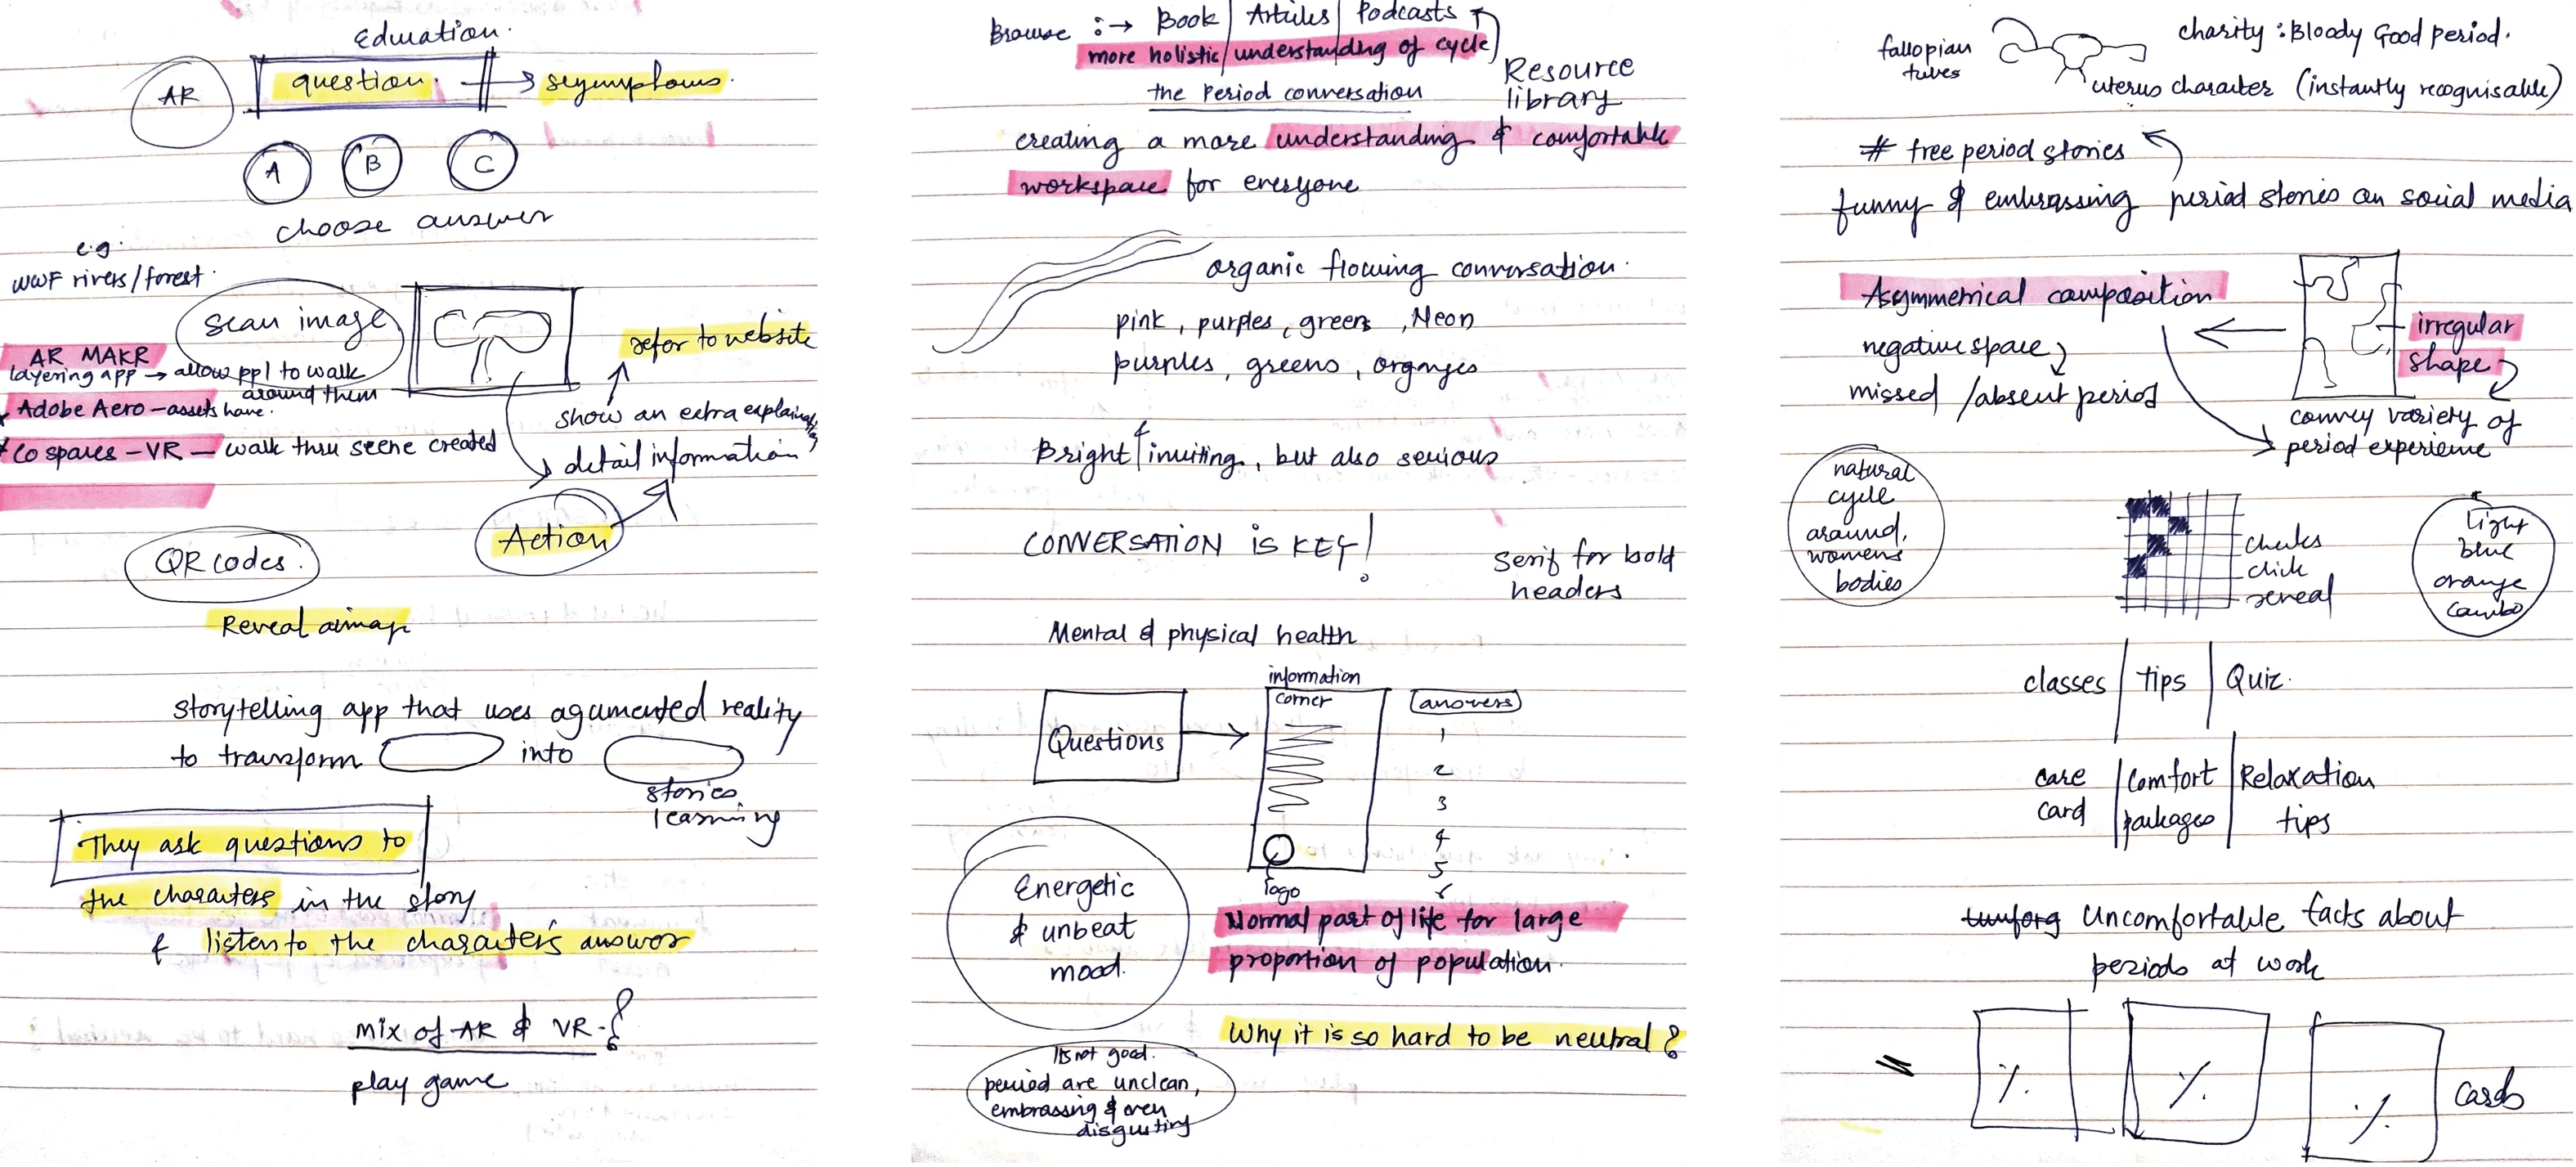 Education.
AR
question.
seymptoms.
A
B
C
choose answer
e.g.
WWF rivers/forest.
scan image
refer to website
AR MAKR
layering app → allow ppl to walk
around them
Adobe Aero – assets have.
show an extra explaining
Co spaces – VR – walk thru scene created
detail information
Action
QR codes.
Reveal a map
storytelling app that uses agumented reality
to transform into
stories
learning
They ask questions to
the characters in the story
& listen to the character's answer
mix of AR & VR -
play game
Browse :→ Book | Articles | Podcasts
more holistic/understanding of cycle
Resource
library
the Period conversation
creating a more understanding & comfortable
workspace for everyone
organic flowing conversation.
pink, purples, greens, Neon
purples, greens, organges
Bright & inviting, but also serious
CONVERSATION is KEY!
Serif for bold
headers
Mental & physical health
information
corner
answers
Questions
1
2
3
4
5
logo
Energetic
& unbeat
mood.
Normal part of life for large
proportion of population.
Why it is so hard to be neutral?
Its not good.
period are unclean,
embrassing & even
disgusting
fallopian
tubes
charity : Bloody Good period.
uterus character (instantly recognisable)
# free period stories
funny & embrassing period stories on social media
Asymmetrical composition
irregular
shape
negative space
missed /absent period
convey variety of
period experience
natural
cycle
around,
womens
bodies
checks
click
reveal
light
blue
orange
combo
classes | tips | Quiz.
care | Comfort | Relaxation
card | packages | tips
Uncomfortable facts about
periods at work
%
%
%
cards